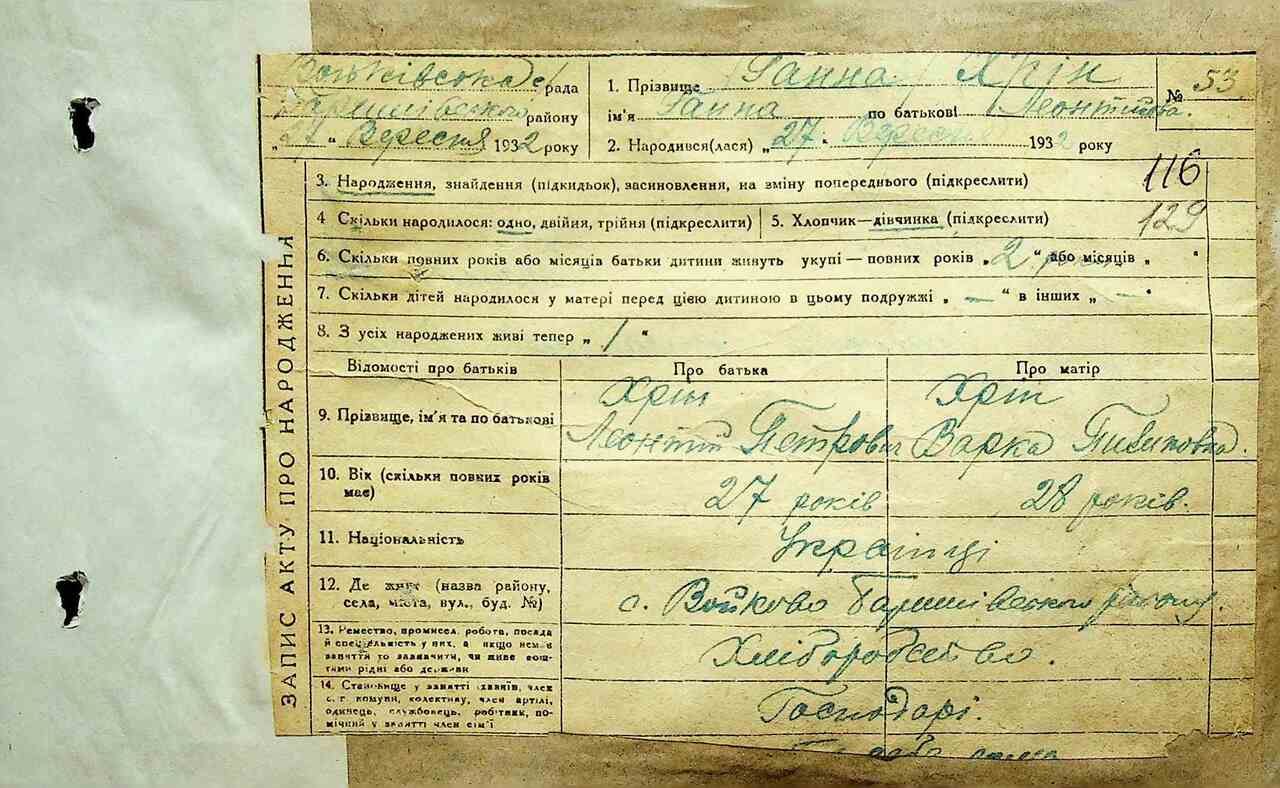 Войківська с/рада
Баришівського району
„27" Вересня 1932 року
1. Прізвище Ганна Хрін
ім'я Ганна по батькові Леонтіївна.
2. Народився(лася) „27" Вересня 1932 року
№ 53
116
129
ЗАПИС АКТУ ПРО НАРОДЖЕННЯ
3. Народження, знайдення (підкидьок), засиновлення, на зміну попереднього (підкреслити)
4 Скільки народилося: одно, двійня, трійня (підкреслити)
5. Хлопчик—дівчинка (підкреслити)
6. Скільки повних років або місяців батьки дитини живуть укупі — повних років „2 роки" або місяців „ "
7. Скільки дітей народилося у матері перед цією дитиною в цьому подружжі „ — " в інших „ — "
8. З усіх народжених живі тепер „ 1 "
Відомості про батьків
Про батька
Про матір
9. Прізвище, ім'я та по батькові
Хрін
Леонтій Петрович
Хрін
Варка
10. Вік (скільки повних років має)
27 років
28 років.
11. Національність
Українці
12. Де живе (назва району,
села, міста, вул., буд. №)
с. Войково Баришівського району.
13. Ремество, промисел, робота, посада
й спеціяльність у них, а якщо нема
заняття то зазначити, чи живе кош-
тами рідні або держави
Хліборобство.
14. Становище у занятті хазяїн, член
с. г. комуни, колективу, член артілі,
одинець, службовець, робітник, по-
мічний у занятті член сім'ї
Господарі.